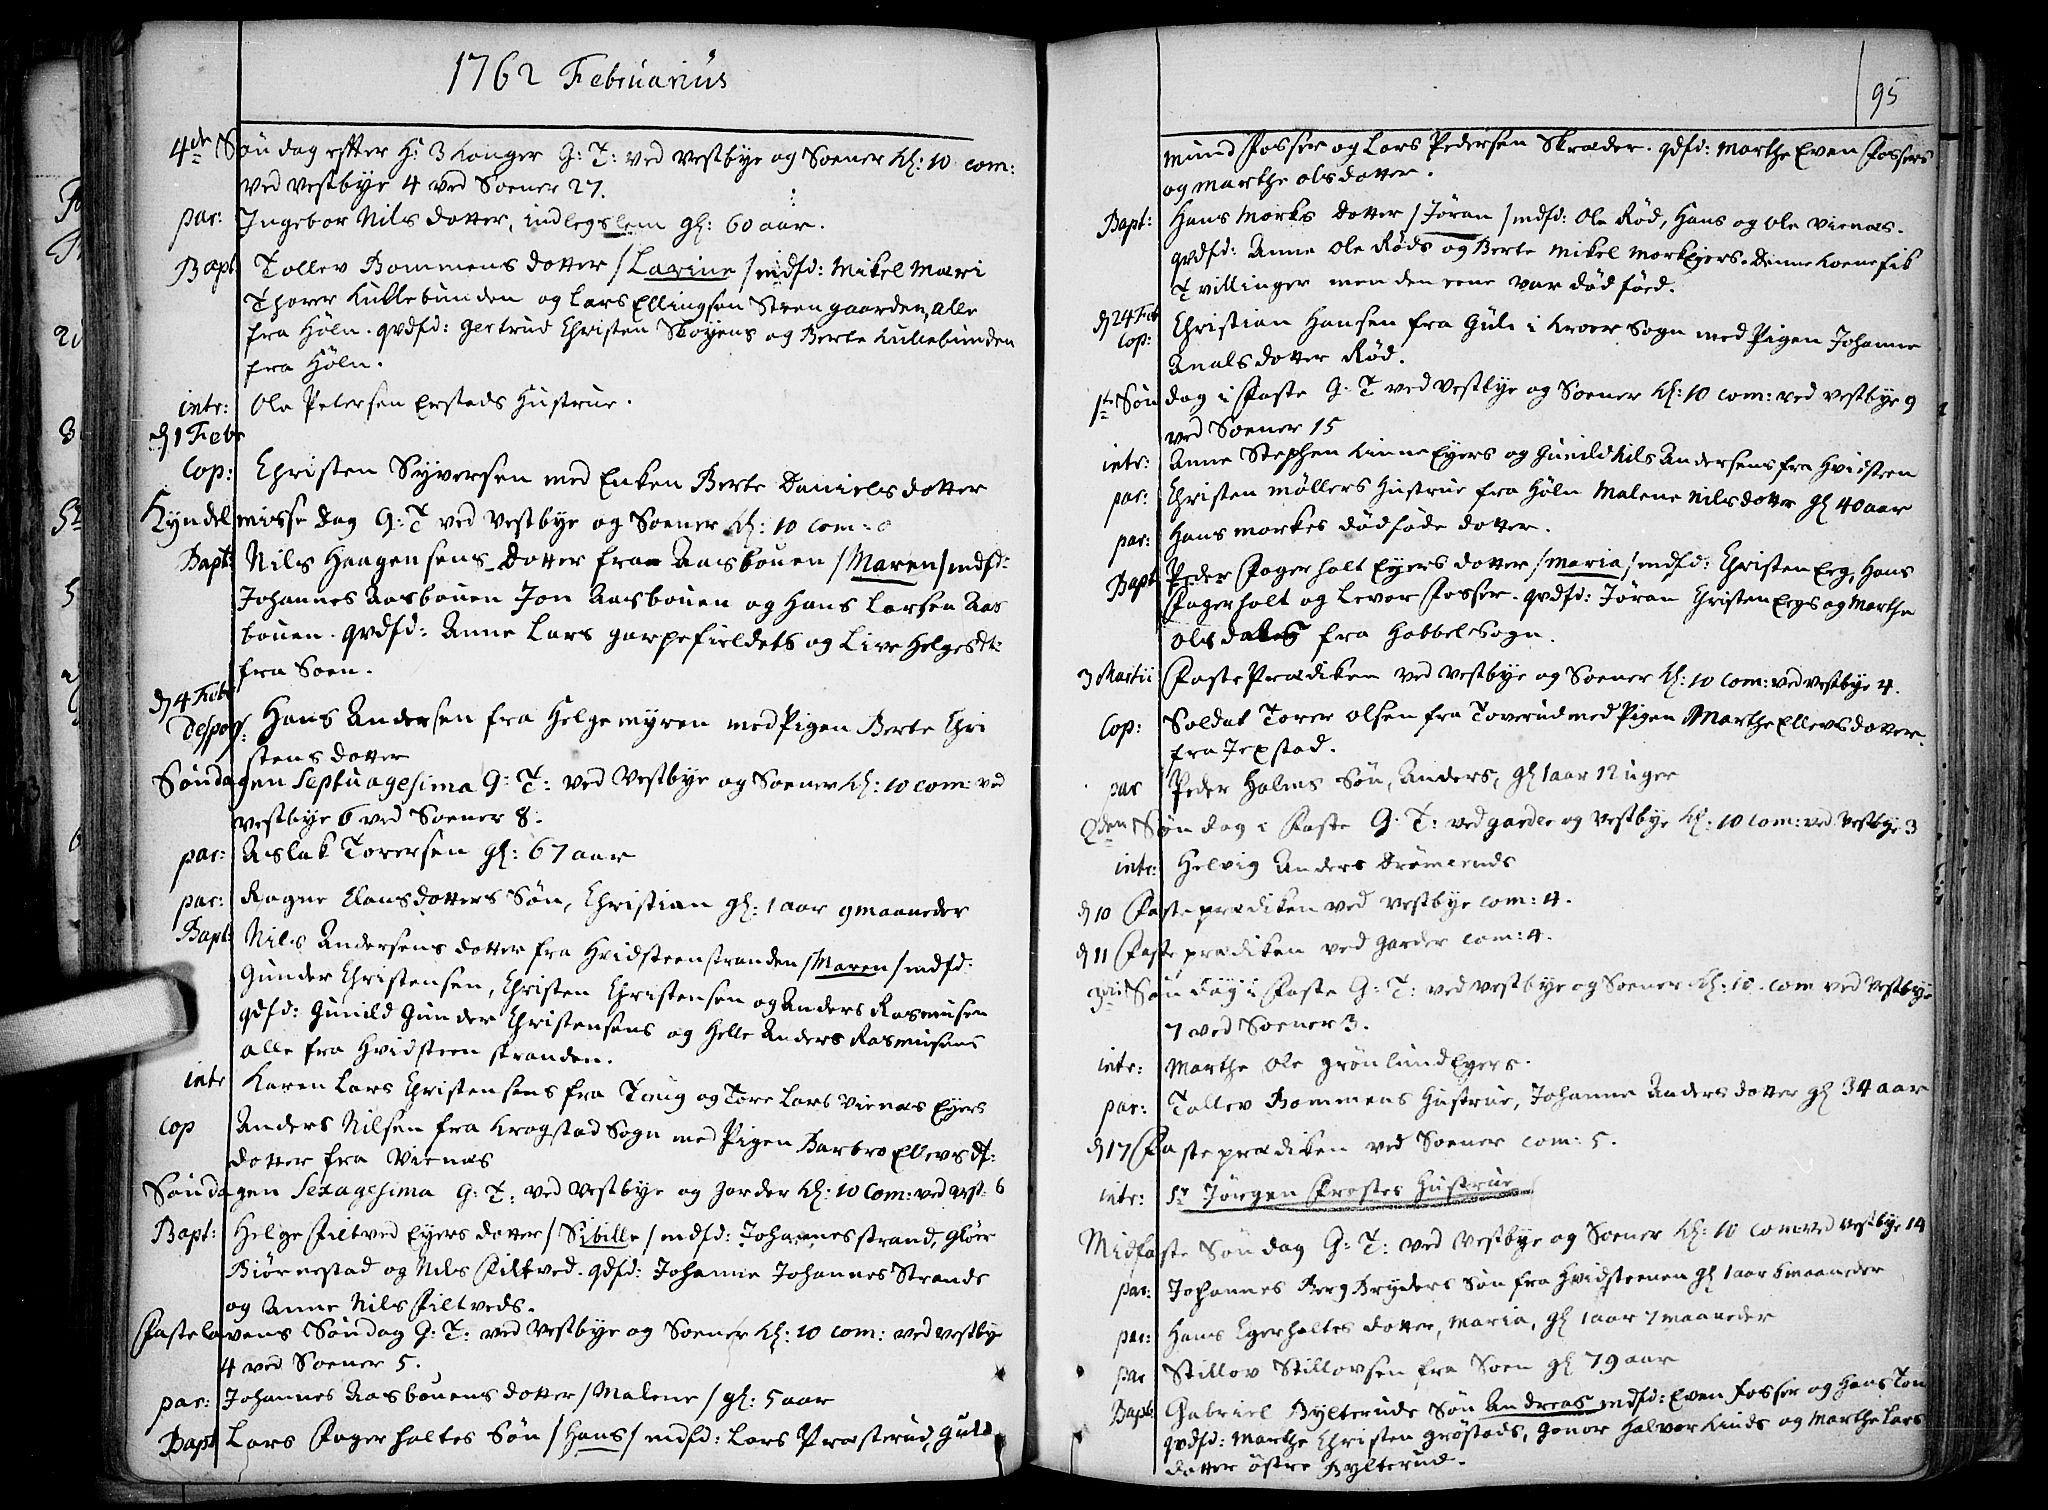 1762 Februarius
4de Søndag effter H: 3 Konger G: T: ved Vestbye og Soener Kl: 10 com:
ved Vestbye 4 ved Soener 27.
par: Ingebor Nils dotter, indlegslem gl: 60 aar.
Bapt: Tollev Bommens dotter /Larine/ mdfd: Mikel Mæri
Thorer Kullebunden og Lars Ellingsen Steengaarden, alle
fra Høln. qvdfd: Gertrud Christen Skoyens og Berte Kullebunden
fra Høln.
intr: Ole Petersen Erstads Hustrue.
d 1 Febr
Cop: Christen Syversen med Enken Berte Daniels dotter
Kyndelmisse dag G: T ved Vestbye og Soener Kl: 10 com: 0
Bapt: Nils Haagensens dotter fra Aasbouen /Maren/ mdfd:
Johannes Aasbouen Jon Aasbouen og Hans Larsen Aas
bouen. qvdfd: Anne Lars garpefieldets og Live Helgesdt:
fra Soen.
d 4 Febr
Despons: Hans Andersen fra Helgemyren med Pigen Berte Chri
stens dotter
Søndagen Septuagesima G: T: ved Vestbye og Soener Kl: 10 com: ved
Vestbye 6 ved Soener 8.
par: Aslak Torersen gl: 67 aar
par: Ragne Clausdotters Søn, Christian gl: 1 aar 9 maaneder
Bapt: Nils Andersens dotter fra Hvidsteenstranden /Maren/ mdfd:
Gunder Christensen, Christen Christensen og Anders Rasmusen
qdfd: Gunild Gunder Christensens og Helle Anders Rasmusens
alle fra Hvidsteen stranden.
intr Karen Lars Christensens fra Toug og Tore Lars Vienas Eyers
cop Anders Nilsen fra Krogstad Sogn med Pigen Barbro Ellevs dt:
dotter fra Vienas
Søndagen Sexagesima G: T: ved Vestbye og Garder Kl: 10 Com: ved vest: 6
Bapt: Helge Filtved Eyers dotter /Sibille/ mdfd: Johannes Strand, Gloer
Biørnestad og Nils Filtved. qdfd: Johanne Johannes Strands
og Anne Nils Filtveds.
Fastelavens Søndag G: T: ved Vestbye og Soener Kl: 10 com: ved Vestbye
4 ved Soener 5.
par: Johannes Aasbouens dotter /Malene/ gl: 5 aar
Bapt Lars Fagerholtes Søn /Hans/ mdfd: Lars Præsterud, Guld
95
mund Fosser og Lars Pedersen Skræder. qdfd: Marthe Even Fossers
og Marthe Olsdotter.
Bapt: Hans Morks dotter /Jøran/ mdfd: Ole Rød, Hans og Ole Vienas.
qvdfd: Anne Ole Røds og Berte Mikel Mork Eyers. Denne Koene fik
Tvillinger men den eene var død føed.
d 24 Feb
Cop: Christian Hansen fra Gule i Kroer Sogn med Pigen Johanne
Anals dotter Rød.
1te Søndag i Faste G: T ved Vestbye og Soener Kl: 10 com: ved Vestbye 9
ved Soener 15
intr: Anne Stephen Kinne Eyers og Gunild Nils Andersens fra Hvidsteen
par: Christen Møllers Hustrue fra Høln Malene Nilsdotter gl 40 aar
par: Hans Morkes dødføde dotter.
Bapt Peder Fagerholt Eyers dotter /Maria/ mdfd: Christen Eeg, Hans
Fagerholt og Levor Fosser. qvdfd: Jøran Christen Eegs og Marthe
Olsdaters fra Hobbel Sogn.
3 Martii Faste Prædiken ved Vestbye og Soener Kl: 10 com: ved Vestbye 4.
Cop: Soldat Torer Olsen fra Toverud med Pigen Marthe Ellevsdotter
fra Jexstad.
par Peder Holms Søn, Anders, gl 1 aar 12 uger
2den Søndag i Faste G: T: ved Garder og Vestbye Kl: 10 com: ved Vestbye 3
intr: Helvig Anders Drømtends
d 10 Faste prædiken ved Vestbye com: 4.
d 11 Faste prædiken ved Garder com: 4.
3die Søndag i Faste G: T: ved Vestbye og Soener Kl: 10. com ved Vestbye
7 ved Soener 3.
intr: Marthe Ole Grønlund Eyers.
par: Tollev Bommens Hustrue, Johanne Anders dotter gl 34 aar
d 17 Faste prædiken ved Soener com: 5.
intr: Sr Jørgen Frostes Hustrue
Midfaste Søndag G: T: ved Vestbye og Soener Kl: 10 com: ved Vestbye 14
par: Johannes Berg Bryders Søn fra Hvidsteenen gl 1 aar 6 maaneder
par: Hans Egerholtes dotter, Maria, gl 1 aar 7 maaneder
par Stillov Stillovsen fra Soen gl 79 aar
Bapt: Gabriel Bylteruds Søn Andreas mdfd: Even Fosser og Hans Ton
qvdfd: Marthe Christen Grøstads, Gonor Halvor Kinds og Marthe Lars
dotter østre Bylterud.